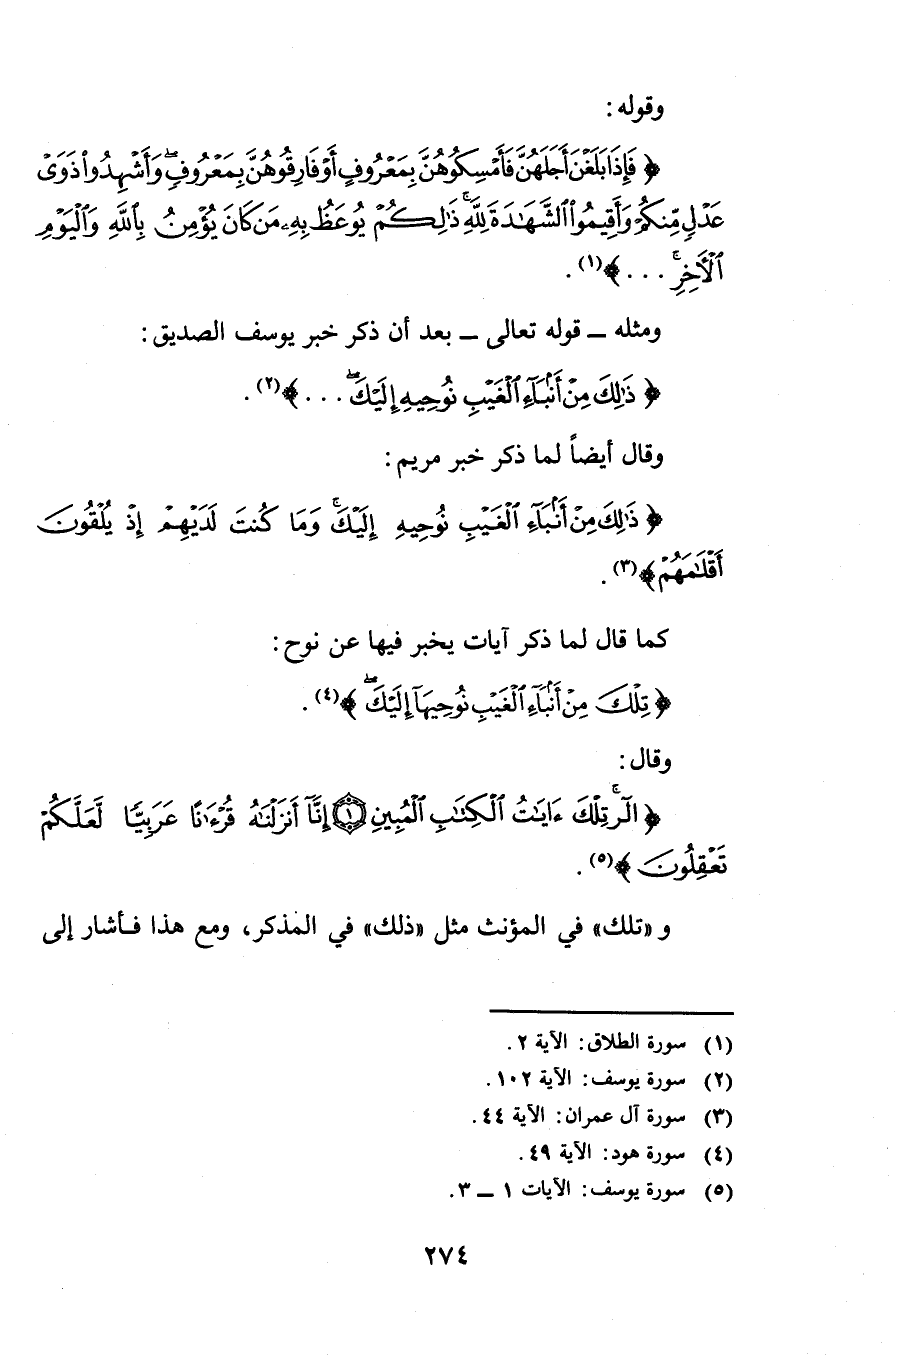 وقوله:
﴿ فَإِذَا بَلَغْنَ أَجَلَهُنَّ فَأَمْسِكُوهُنَّ بِمَعْرُوفٍ أَوْ فَارِقُوهُنَّ بِمَعْرُوفٍۖ وَأَشْهِدُوا۟ ذَوَىْ
عَدْلٍ مِّنكُمْ وَأَقِيمُوا۟ ٱلشَّهَٰدَةَ لِلَّهِۚ ذَٰلِكُمْ يُوعَظُ بِهِۦ مَن كَانَ يُؤْمِنُ بِٱللَّهِ وَٱلْيَوْمِ
ٱلْأَخِرِۚ . . . ﴾(١).
ومثله ــ قوله تعالى ــ بعد أن ذكر خبر يوسف الصديق:
﴿ ذَٰلِكَ مِنْ أَنۢبَآءِ ٱلْغَيْبِ نُوحِيهِ إِلَيْكَۖ . . . ﴾(٢).
وقال أيضاً لما ذكر خبر مريم:
﴿ ذَٰلِكَ مِنْ أَنۢبَآءِ ٱلْغَيْبِ نُوحِيهِ إِلَيْكَۚ وَمَا كُنتَ لَدَيْهِمْ إِذْ يُلْقُونَ
أَقْلَٰمَهُمْ ﴾(٣).
كما قال لما ذكر آيات يخبر فيها عن نوح:
﴿ تِلْكَ مِنْ أَنۢبَآءِ ٱلْغَيْبِ نُوحِيهَآ إِلَيْكَۖ ﴾(٤).
وقال:
﴿ الٓرۚ تِلْكَ ءَايَٰتُ ٱلْكِتَٰبِ ٱلْمُبِينِ ۝١ إِنَّآ أَنزَلْنَٰهُ قُرْءَٰنًا عَرَبِيًّا لَّعَلَّكُمْ
تَعْقِلُونَ ﴾(٥).
و «تلك» في المؤنث مثل «ذلك» في المذكر، ومع هذا فـأشار إلى
(١) سورة الطلاق: الآية ٢.
(٢) سورة يوسف: الآية ١٠٢.
(٣) سورة آل عمران: الآية ٤٤.
(٤) سورة هود: الآية ٤٩.
(٥) سورة يوسف: الآيات ١ ــ ٣.
٢٧٤